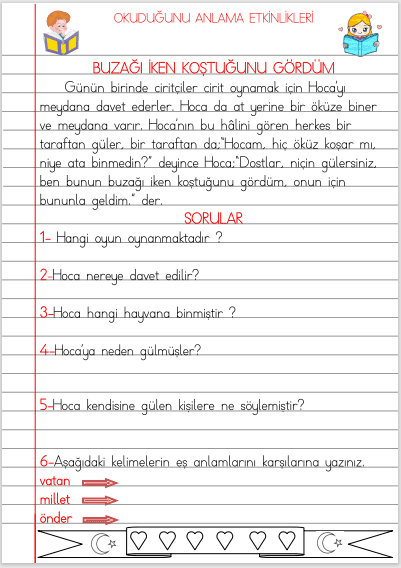 OKUDUĞUNU ANLAMA ETKİNLİKLERİ
BUZAĞI İKEN KOŞTUĞUNU GÖRDÜM
Günün birinde ciritçiler cirit oynamak için Hoca'yı
meydana davet ederler. Hoca da at yerine bir öküze biner
ve meydana varır. Hoca'nın bu hâlini gören herkes bir
taraftan güler, bir taraftan da;"Hocam, hiç öküz koşar mı,
niye ata binmedin?" deyince Hoca;"Dostlar, niçin gülersiniz,
ben bunun buzağı iken koştuğunu gördüm, onun için
bununla geldim." der.
SORULAR
1- Hangi oyun oynanmaktadır ?
2-Hoca nereye davet edilir?
3-Hoca hangi hayvana binmiştir ?
4-Hoca'ya neden gülmüşler?
5-Hoca kendisine gülen kişilere ne söylemiştir?
6-Aşağıdaki kelimelerin eş anlamlarını karşılarına yazınız.
vatan
millet
önder